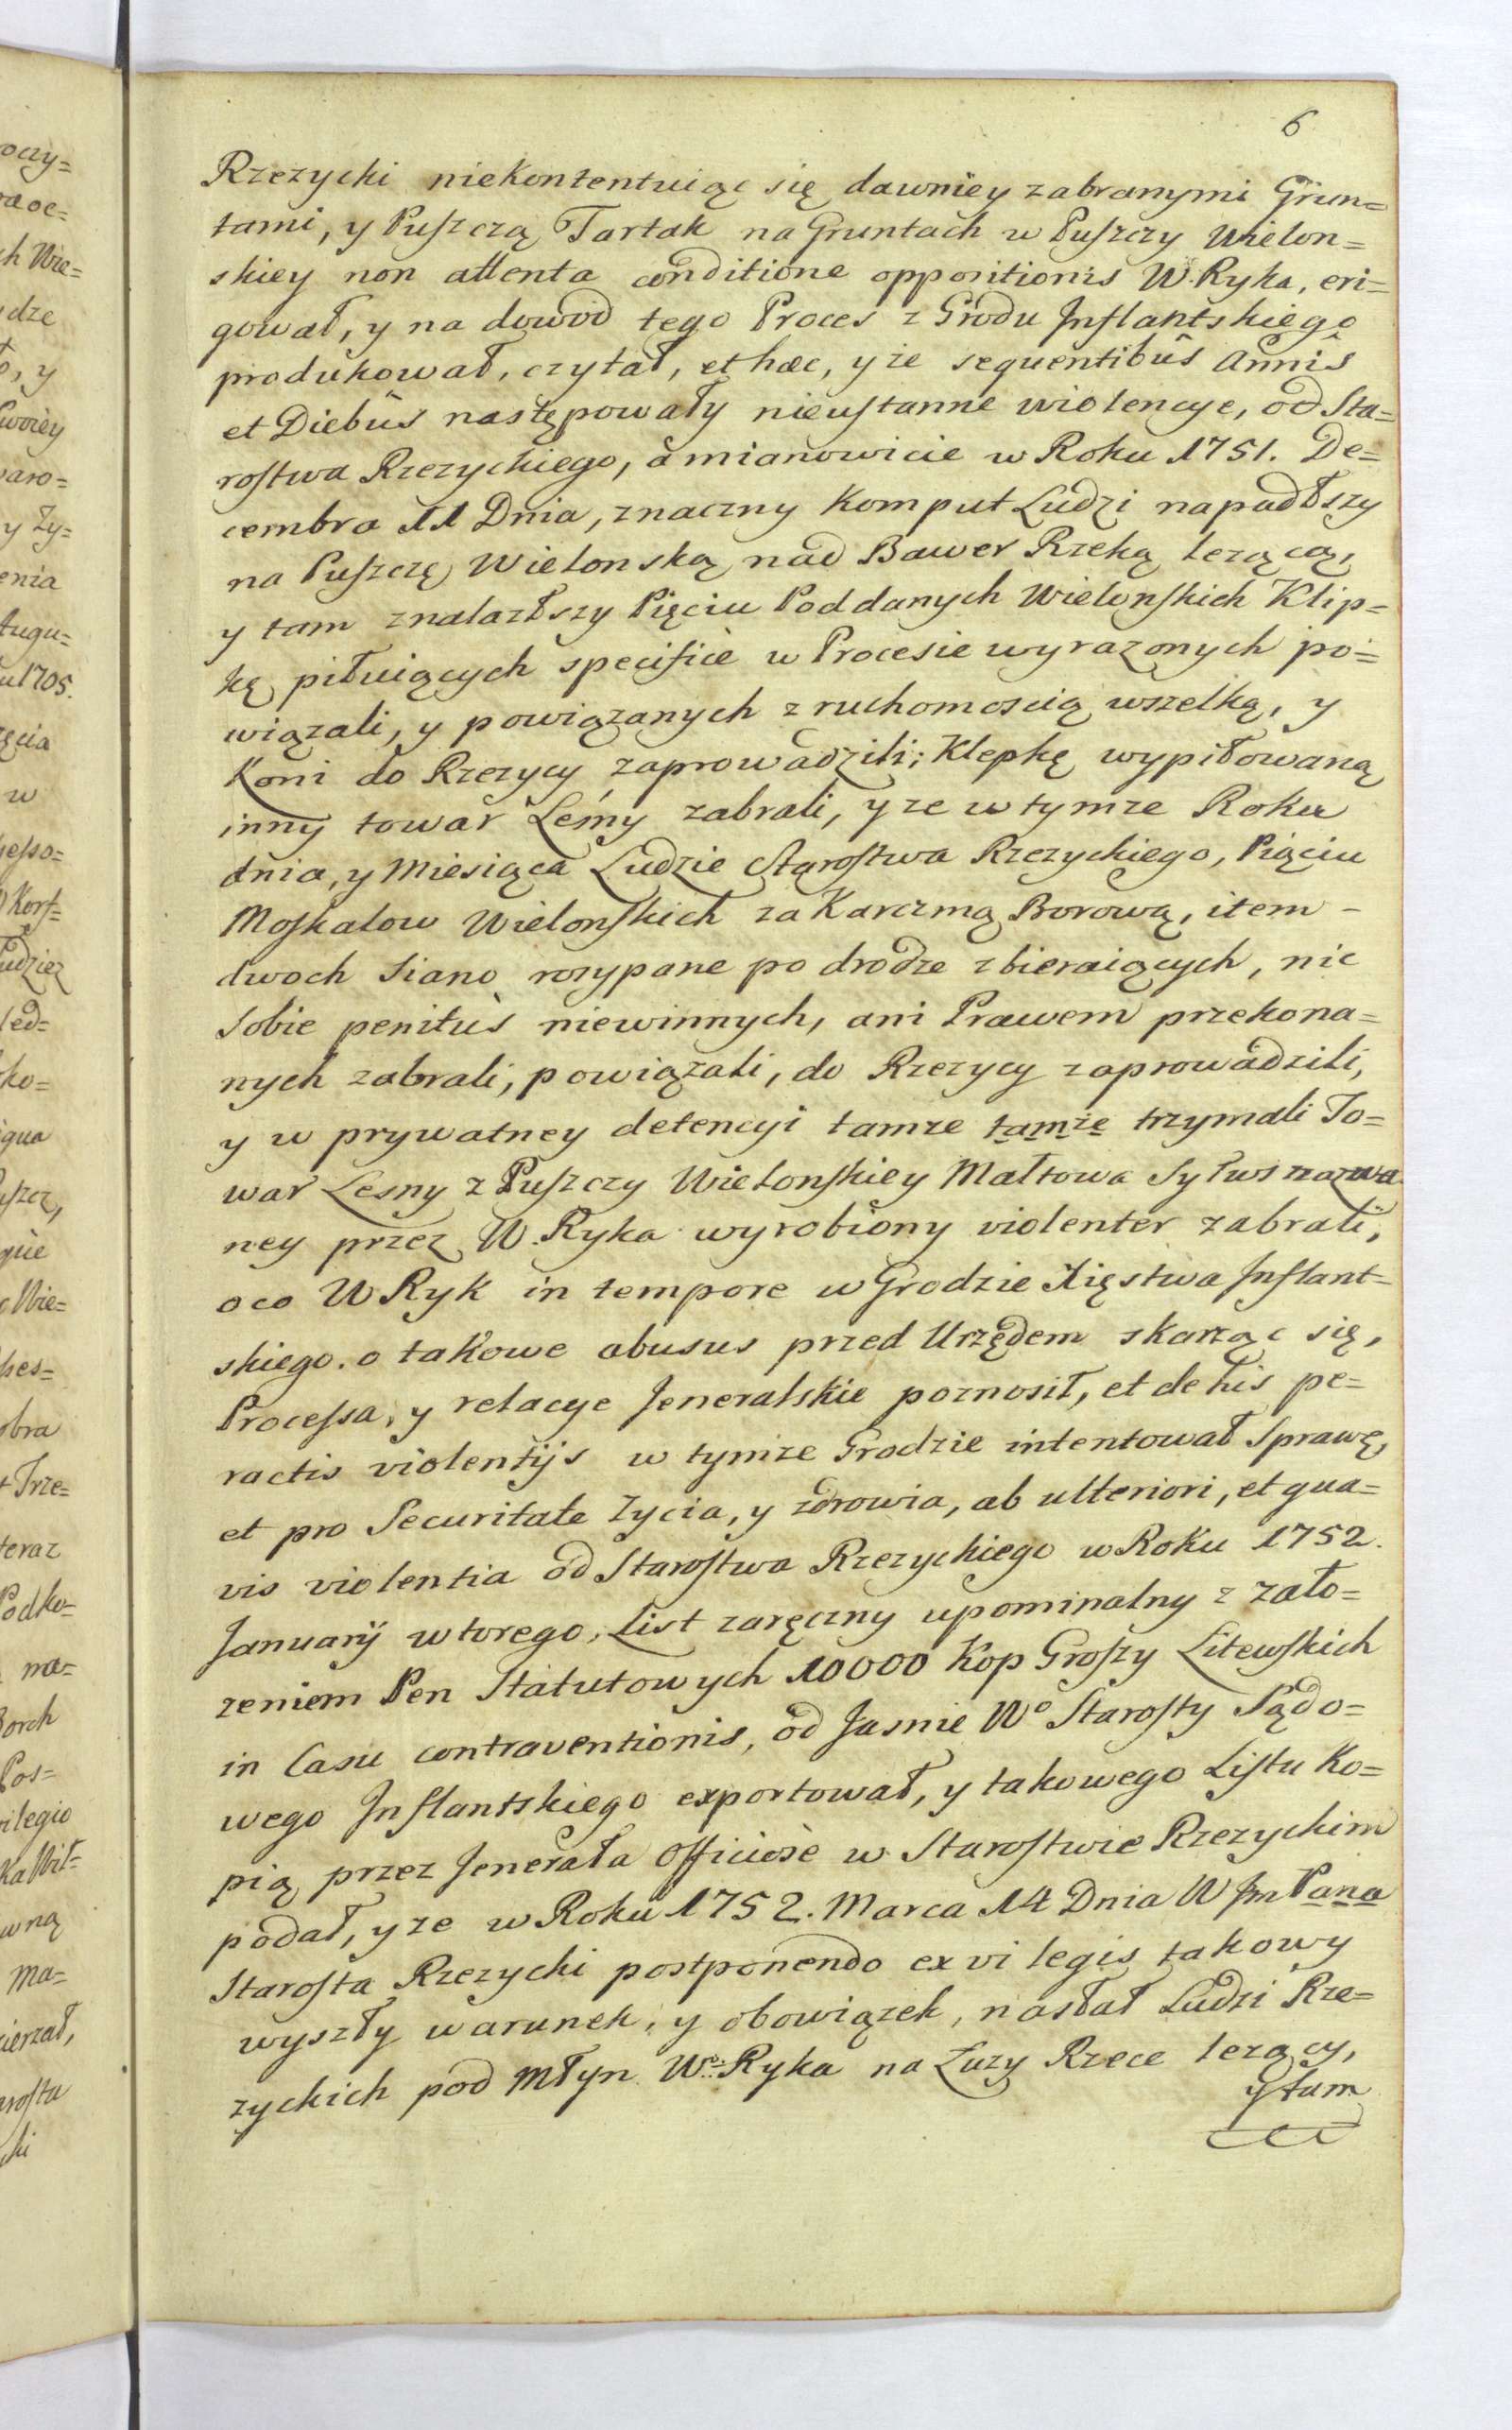 6
Rzezycki niekontentuiąc się dawniey zabranymi Grun=
tami, y Puszczą Tartak na Gruntach w Puszczy Wielon=
skiey non attenta conditione oppositionis W. Ryka, eri=
gował, y na dowod tego Proces z Grodu Inflantskiego
produkował, czytał, et hæc, y że sequentibus Annis
et Diebus następowały nieustanne wiolencye, od Sta=
rostwa Rzezyckiego, a mianowicie w Roku 1751. De=
cembra 11 Dnia, znaczny Komput Ludzi napadłszy
na Puszczę Wielonską nad Bawer Rzeką lezącą,
y tam znalazłszy Pięciu Poddanych Wielonskich Klip=
kę piłuiących specifice w Procesie wyrazonych po=
wiązali, y powiązanych z ruchomoscią wszelką, y
Koni do Rzezycy zaprowadzili; Klepkę wypiłowaną
inny towar Leśny zabrali, y ze w tymze Roku
dnia, y Miesiąca Ludzie Starostwa Rzezyckiego, Piąciu
Moskalow Wielonskich za Karczmą Borową, item -
dwoch Siano rosypane po drodze zbieraiących, nic
Sobie penitus niewinnych, ani Prawem przekona=
nych zabrali, powiązali, do Rzezycy zaprowadzili,
y w prywatney detencyi tamze tamże trzymali To=
war Lesny z Puszczy Wielonskiey Małtowa Syłws nazwa
ney przez W. Ryka wyrobiony violenter zabrali,
oco W Ryk in tempore w Grodzie Xięstwa Inflant=
skiego. o takowe abusus przed Urzędem skarząc się,
Processa, y relacye Jeneralskie poznosił, et de his pe=
ractis violentijs w tymze Grodzie intentował Sprawę,
et pro Securitate zycia, y zdrowia, ab ulteriori, et qua=
vis violentia od Starostwa Rzezyckiego w Roku 1752.
Januarij wtorego, List zaręczny upominalny z zało=
zeniem Pen Statutowych 10000 Kop Groszy Litewskich
in Casu contraventionis, od Jasnie Wo Starosty Sądo=
wego Inflantskiego exportował, y takowego Listu Ko=
pią przez Jenerała Officiosè w Starostwie Rzezyckim
podał, y ze w Roku 1752. Marca 14 Dnia W Jm Pana
Starosta Rzezycki postponendo ex vi legis takowy
wyszły warunek, y obowiązek, nasłał Ludzi Rze=
zyckich pod Młyn Wo: Ryka na Luzy Rzece lezący,
y tam